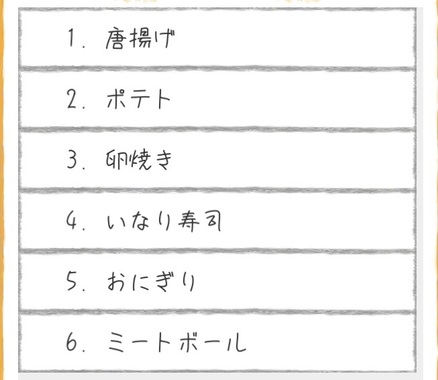 1. 唐揚げ
2. ポテト
3. 卵焼き
4. いなり寿司
5. おにぎり
6. ミートボール